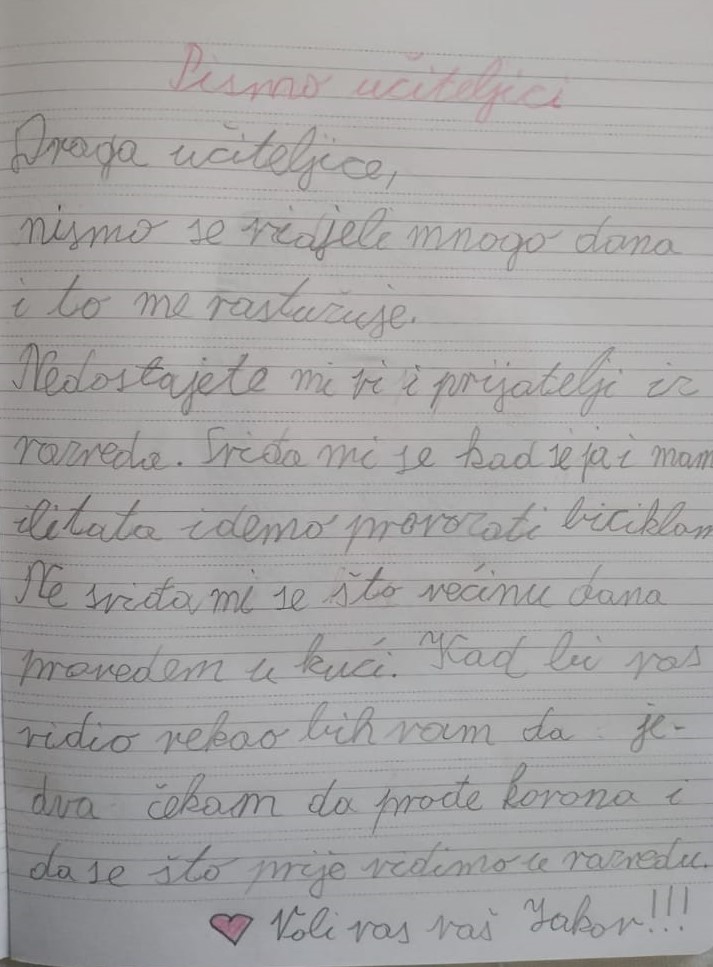 Pismo učiteljici
Draga učiteljice,
nismo se vidjeli mnogo dana
i to me rastužuje.
Nedostajete mi vi i prijatelji iz
razreda. Sviđa mi se kad se ja i mam
ili tata idemo provozati biciklom
Ne sviđa mi se što većinu dana
provedem u kući. Kad bi vas
vidio rekao bih vam da je-
dva čekam da prođe korona i
da se što prije vidimo u razredu.
Voli vas vaš Jakov!!!